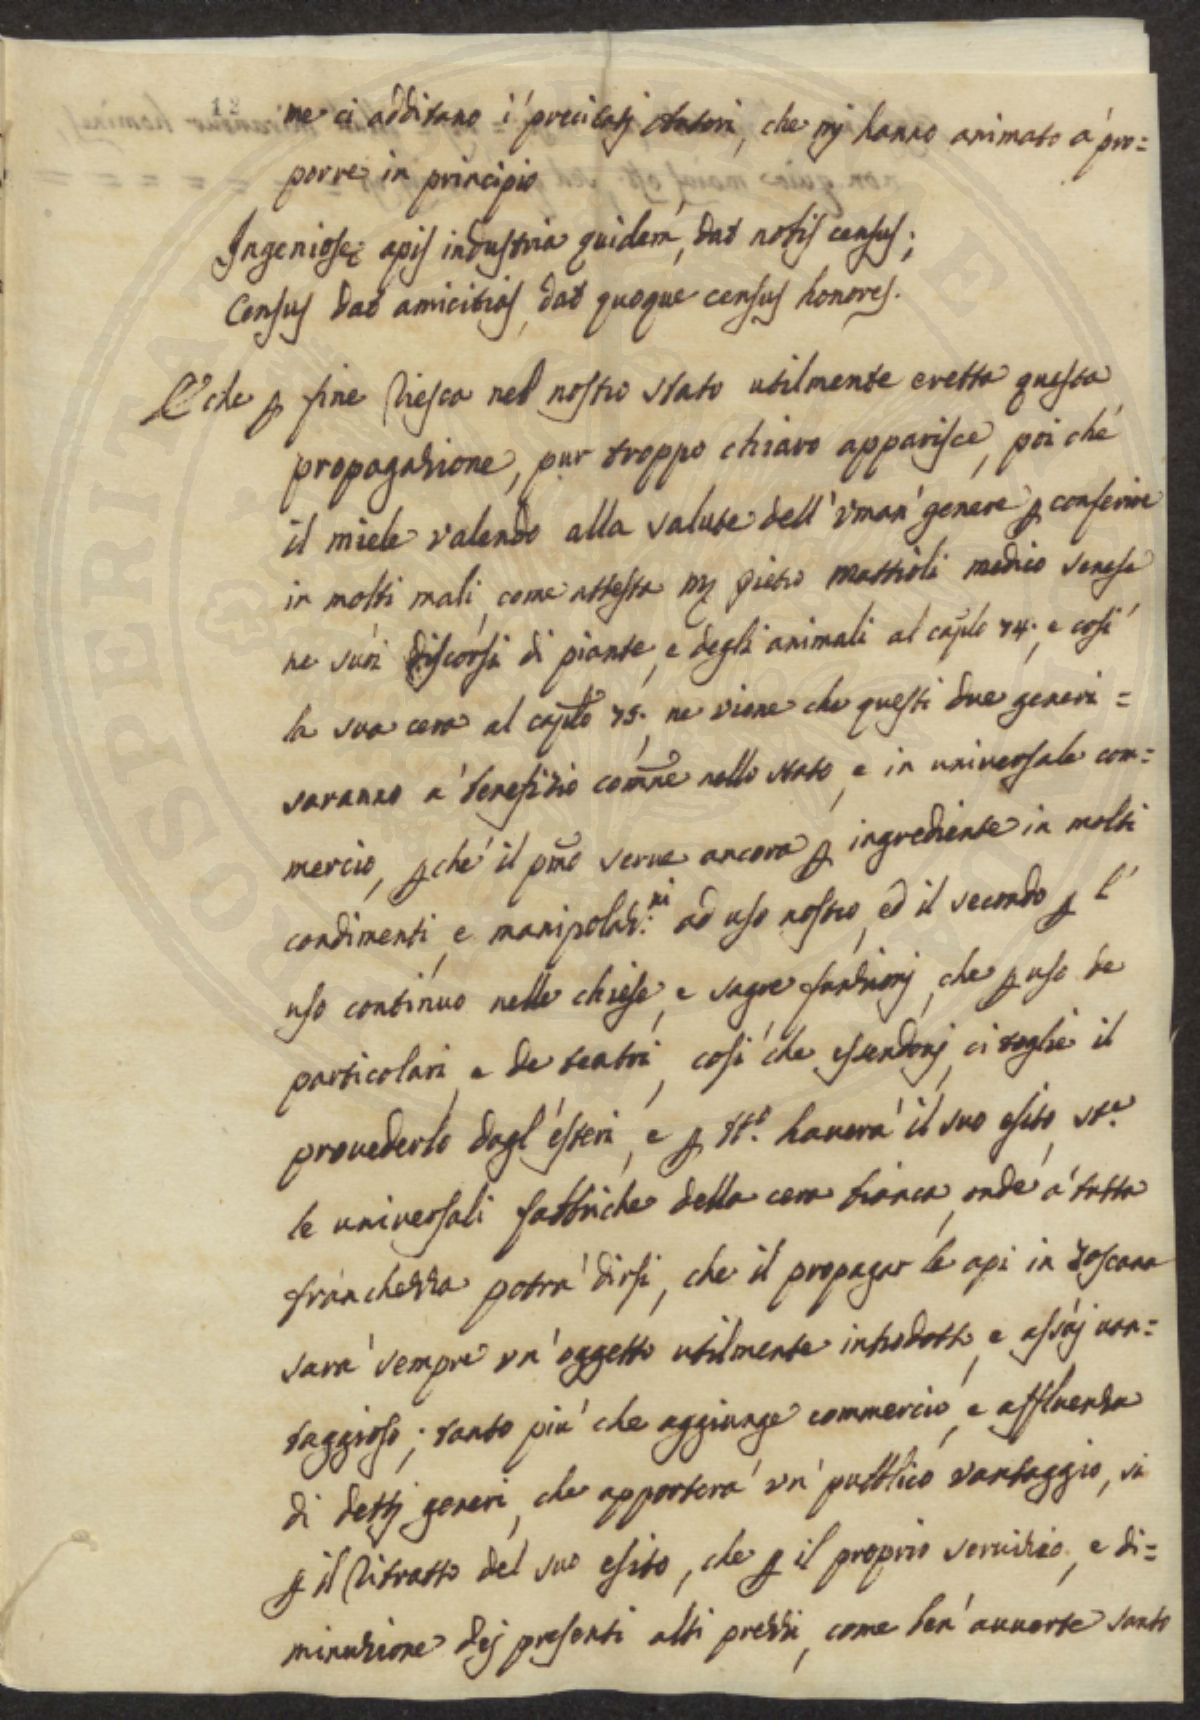 12
ne ci additano i' precitatj Autori, che mj hanno animato a' pro=
porre in principio
Ingeniosę apis industria quidem, dat nobis census;
Census dat amicitias, dat quoque census honores.
E che ꝑ fine riesca nel nostro stato utilmente eretta questa
propagazione, pur troppo chiaro apparisce, poi ché
il miele valendo alla salute dell' vman' genere ꝑ conferire
in molti mali, come attesta Pietro Mattioli medico senese
ne suoi discorsi di piante, e degli animali al caplo 74. e cosi'
la sua cera al caplo 75. ne viene che questi due generi =
saranno a' benefizio comne nello stato, e in universale com=
mercio, ꝑche' il pmo serve ancora ꝑ ingrediente in molti
condimenti, e manipolaz.ni ad uso nostro, ed il secondo ꝑ l'
uso continuo nelle chiese, e sagre funzionj, che ꝑ uso de
particolari, e de teatri, cosi' che essendonj, ci toglie il
provederlo dagl' esteri, e ꝑ st.o haverà il suo esito, st.e
le universali fabbriche della cera bianca, onde a' tutta
franchezza potra' dirsi, che il propagar le api in Toscana
sara' sempre vn' oggetto utilmente introdotto, e assaj van=
taggioso; tanto piu' che aggiunge commercio, e affluenza
di dettj generi, che apportera' vn' pubblico vantaggio, si
ꝑ il ritratto del suo esito, che ꝑ il proprio servizio, e di=
minuzione dej presenti alti prezzi, come ben' avverte Santo